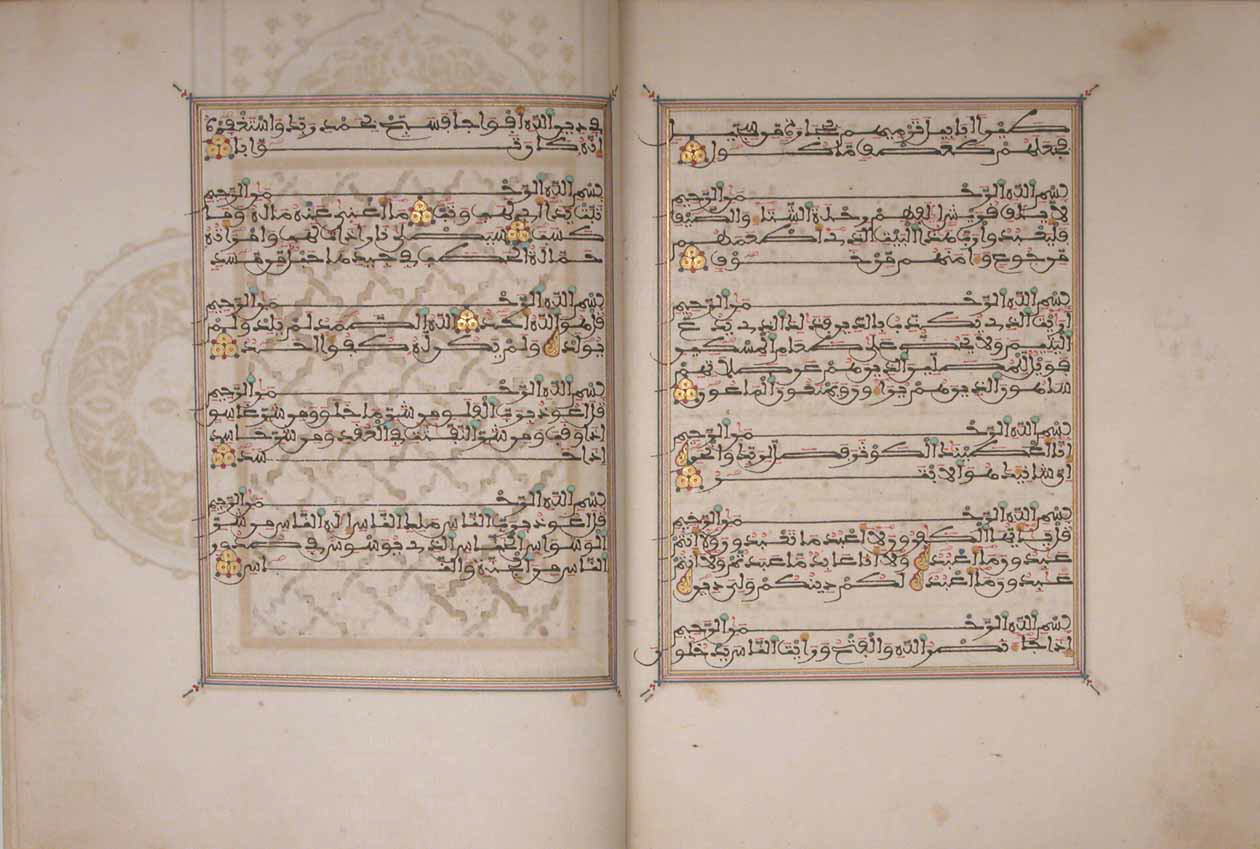 طيرا ابابيل ترميهم بحجارة من سجيل
فجعلهم كعصف ماكول
بسم الله الرحمن الرحيم
لإيلف قريش الفهم رحلة الشتاء والصيف
فليعبدوا رب هذا البيت الذي اطعمهم
من جوع وءامنهم من خوف
بسم الله الرحمن الرحيم
اريت الذي يكذب بالدين فذلك الذي يدع
اليتيم ولا يحض على طعام المسكين
فويل للمصلين الذين هم عن صلاتهم
ساهون الذين هم يراءون ويمنعون الماعون
بسم الله الرحمن الرحيم
انا اعطينك الكوثر فصل لربك وانحر
ان شانئك هو الابتر
بسم الله الرحمن الرحيم
قل يايها الكفرون لا اعبد ما تعبدون ولا انتم
عبدون ما اعبد ولا انا عابد ما عبدتم ولا انتم
عبدون ما اعبد لكم دينكم ولي دين
بسم الله الرحمن الرحيم
اذا جاء نصر الله والفتح ورايت الناس يدخلون
في دين الله افواجا فسبح بحمد ربك واستغفره
انه كان توابا
بسم الله الرحمن الرحيم
تبت يدا ابي لهب وتب ما اغنى عنه ماله وما
كسب سيصلى نارا ذات لهب وامراته
حمالة الحطب في جيدها حبل من مسد
بسم الله الرحمن الرحيم
قل هو الله احد الله الصمد لم يلد ولم
يولد ولم يكن له كفوا احد
بسم الله الرحمن الرحيم
قل اعوذ برب الفلق من شر ما خلق ومن شر غاسق
اذا وقب ومن شر النفثت في العقد ومن شر حاسد
اذا حسد
بسم الله الرحمن الرحيم
قل اعوذ برب الناس ملك الناس اله الناس من شر
الوسواس الخناس الذي يوسوس في صدور
الناس من الجنة والناس